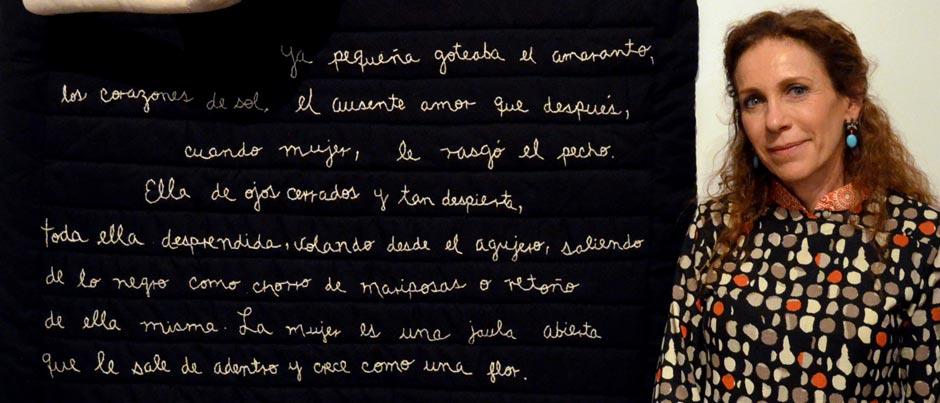 ya pequeña goteaba el amaranto,
los corazones de sol. el ausente amor que después,
cuando mujer, le rasgó el pecho.
Ella de ojos cerrados y tan despierta,
toda ella desprendida, volando desde el agujero, saliendo
de lo negro como chorro de mariposas o retoño
de ella misma. La mujer es una jaula abierta
que le sale de adentro y crece como una flor.